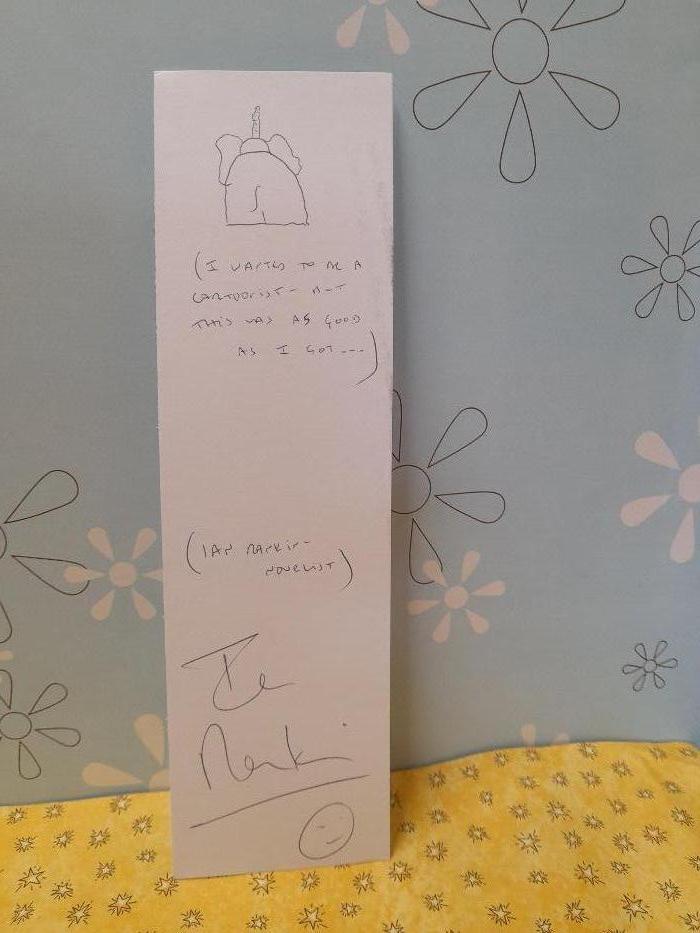 (I WANTED TO BE A
CARTOONIST - BUT
THIS WAS AS GOOD
AS I GOT ---)
(IAN RANKIN -
NOVELIST)
Ian
Rankin